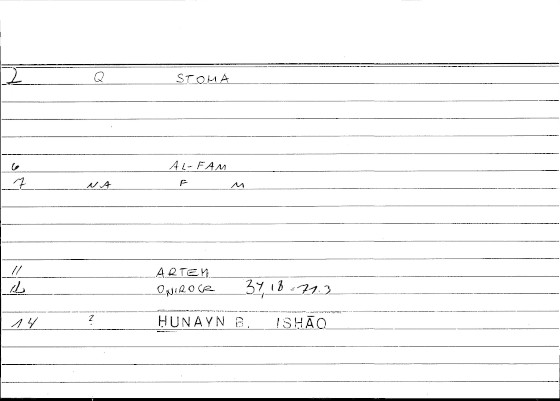 2 Q STOMA
6 AL-FAM
7 NA F M
11 ARTEM
12 ONIROCR 34,18 - 71.3
14 ? HUNAYN B. ISHĀQ